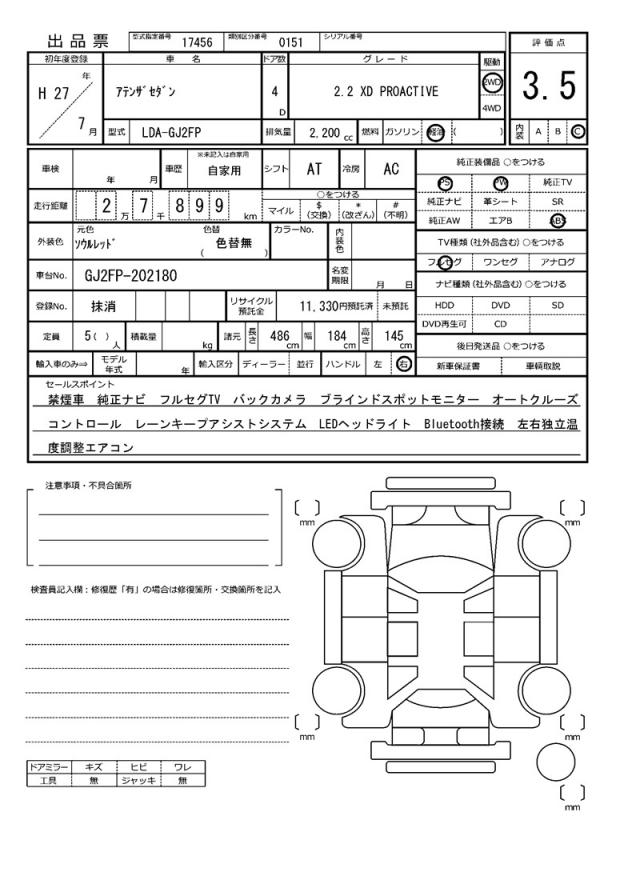 出品票 型式指定番号 17456 類別区分番号 0151 シリアル番号
評価点
3.5
内装 A B C
初年度登録 車名 ドア数 グレード 駆動
H 27 年 7 月 アテンザセダン 4 D 2.2 XD PROACTIVE 2WD 4WD
型式 LDA-GJ2FP 排気量 2,200 cc 燃料 ガソリン 軽油 ( )
車検 年 月 車歴 ※未記入は自家用 自家用 シフト AT 冷房 AC
走行距離 2 万 7 千 8 9 9 km ○をつける
マイル $ (交換) * (改ざん) # (不明)
外装色 元色 ソウルレッド 色替 色替無 ( ) カラーNo. 内装色
車台No. GJ2FP-202180 名変期限 月 日
登録No. 抹消 リサイクル預託金 11,330円預託済 未預託
定員 5 ( ) 人 積載量 kg 諸元 長さ 486 cm 幅 184 cm 高さ 145 cm
輸入車のみ⇒ モデル年式 年 輸入区分 ディーラー 並行 ハンドル 左 右
純正装備品 ○をつける
PS PW 純正TV
純正ナビ 革シート SR
純正AW エアB ABS
TV種類 (社外品含む) ○をつける
フルセグ ワンセグ アナログ
ナビ種類 (社外品含む) ○をつける
HDD DVD SD
DVD再生可 CD
後日発送品 ○をつける
新車保証書 車輌取説
セールスポイント
禁煙車 純正ナビ フルセグTV バックカメラ ブラインドスポットモニター オートクルーズ
コントロール レーンキープアシストシステム LEDヘッドライト Bluetooth接続 左右独立温
度調整エアコン
注意事項・不具合箇所
検査員記入欄：修復歴「有」の場合は修復箇所・交換箇所を記入
mm mm
mm mm
mm
ドアミラー キズ ヒビ ワレ
工具 無 ジャッキ 無